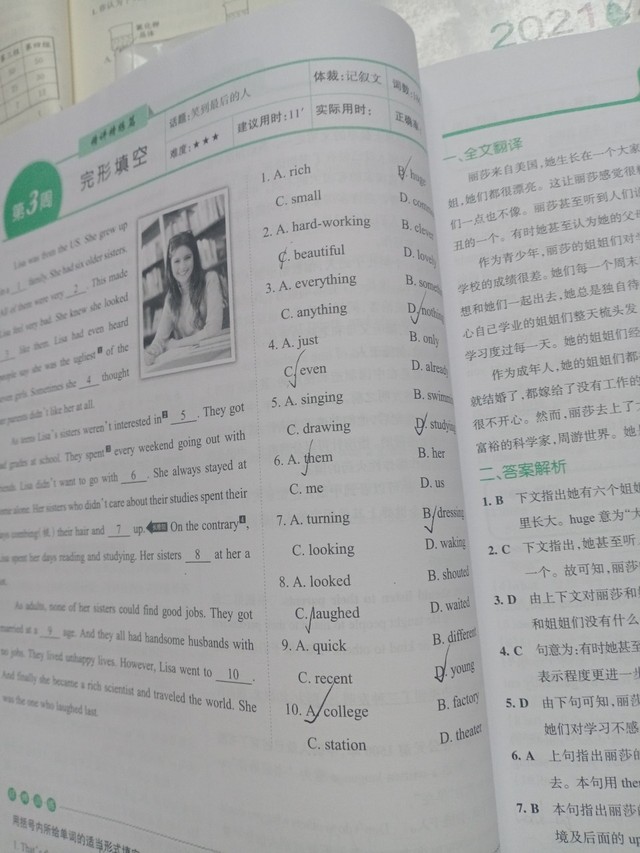 2021
第三组 第四组
第3周
精讲精练篇
完形填空
话题:笑到最后的人
体裁:记叙文
词数:
难度:★★★
建议用时:11′
实际用时:
正确率:
Lisa was from the US. She grew up
in a 1 family. She had six older sisters.
All of them were very 2 . This made
Lisa feel very bad. She knew she looked
3 like them. Lisa had even heard
people say she was the ugliest of the
seven girls. Sometimes she 4 thought
her parents didn't like her at all.
As teens Lisa's sisters weren't interested in 5 . They got
bad grades at school. They spent every weekend going out with
friends. Lisa didn't want to go with 6 . She always stayed at
home alone. Her sisters who didn't care about their studies spent their
days combing(梳) their hair and 7 up. On the contrary,
Lisa spent her days reading and studying. Her sisters 8 at her a
lot.
As adults, none of her sisters could find good jobs. They got
married at a 9 age. And they all had handsome husbands with
no jobs. They lived unhappy lives. However, Lisa went to 10 .
And finally she became a rich scientist and traveled the world. She
was the one who laughed last.
用括号内所给单词的适当形式填空
1. A. rich B. huge
C. small D.
2. A. hard-working B. clever
C. beautiful D. lovely
3. A. everything B.
C. anything D. nothing
4. A. just B. only
C. even D. already
5. A. singing B. swimming
C. drawing D. studying
6. A. them B. her
C. me D. us
7. A. turning B. dressing
C. looking D. waking
8. A. looked B. shouted
C. laughed D. waited
9. A. quick B. different
C. recent D. young
10. A. college B. factory
C. station D. theater
一、全文翻译
丽莎来自美国,她生长在一个大家
姐,她们都很漂亮。这让丽莎感觉很
们一点也不像。丽莎甚至听到人们说
丑的一个。有时她甚至认为她的父
作为青少年,丽莎的姐姐们对学
学校的成绩很差。她们每一个周末
想和她们一起出去,她总是独自待
心自己学业的姐姐们整天梳头发
学习度过每一天。她的姐姐们经
作为成年人,她的姐姐们都
就结婚了,都嫁给了没有工作的
很不开心。然而,丽莎去上了大
富裕的科学家,周游世界。她
二、答案解析
1. B 下文指出她有六个姐姐
里长大。huge意为“大
2. C 下文指出,她甚至听
一个。故可知,丽莎
3. D 由上下文对丽莎和
和姐姐们没有什么
4. C 句意为:有时她甚至
表示程度更进一步
5. D 由下句可知,丽莎
她们对学习不感
6. A 上句指出丽莎的
去。本句用the
7. B 本句指出丽莎的
境及后面的up